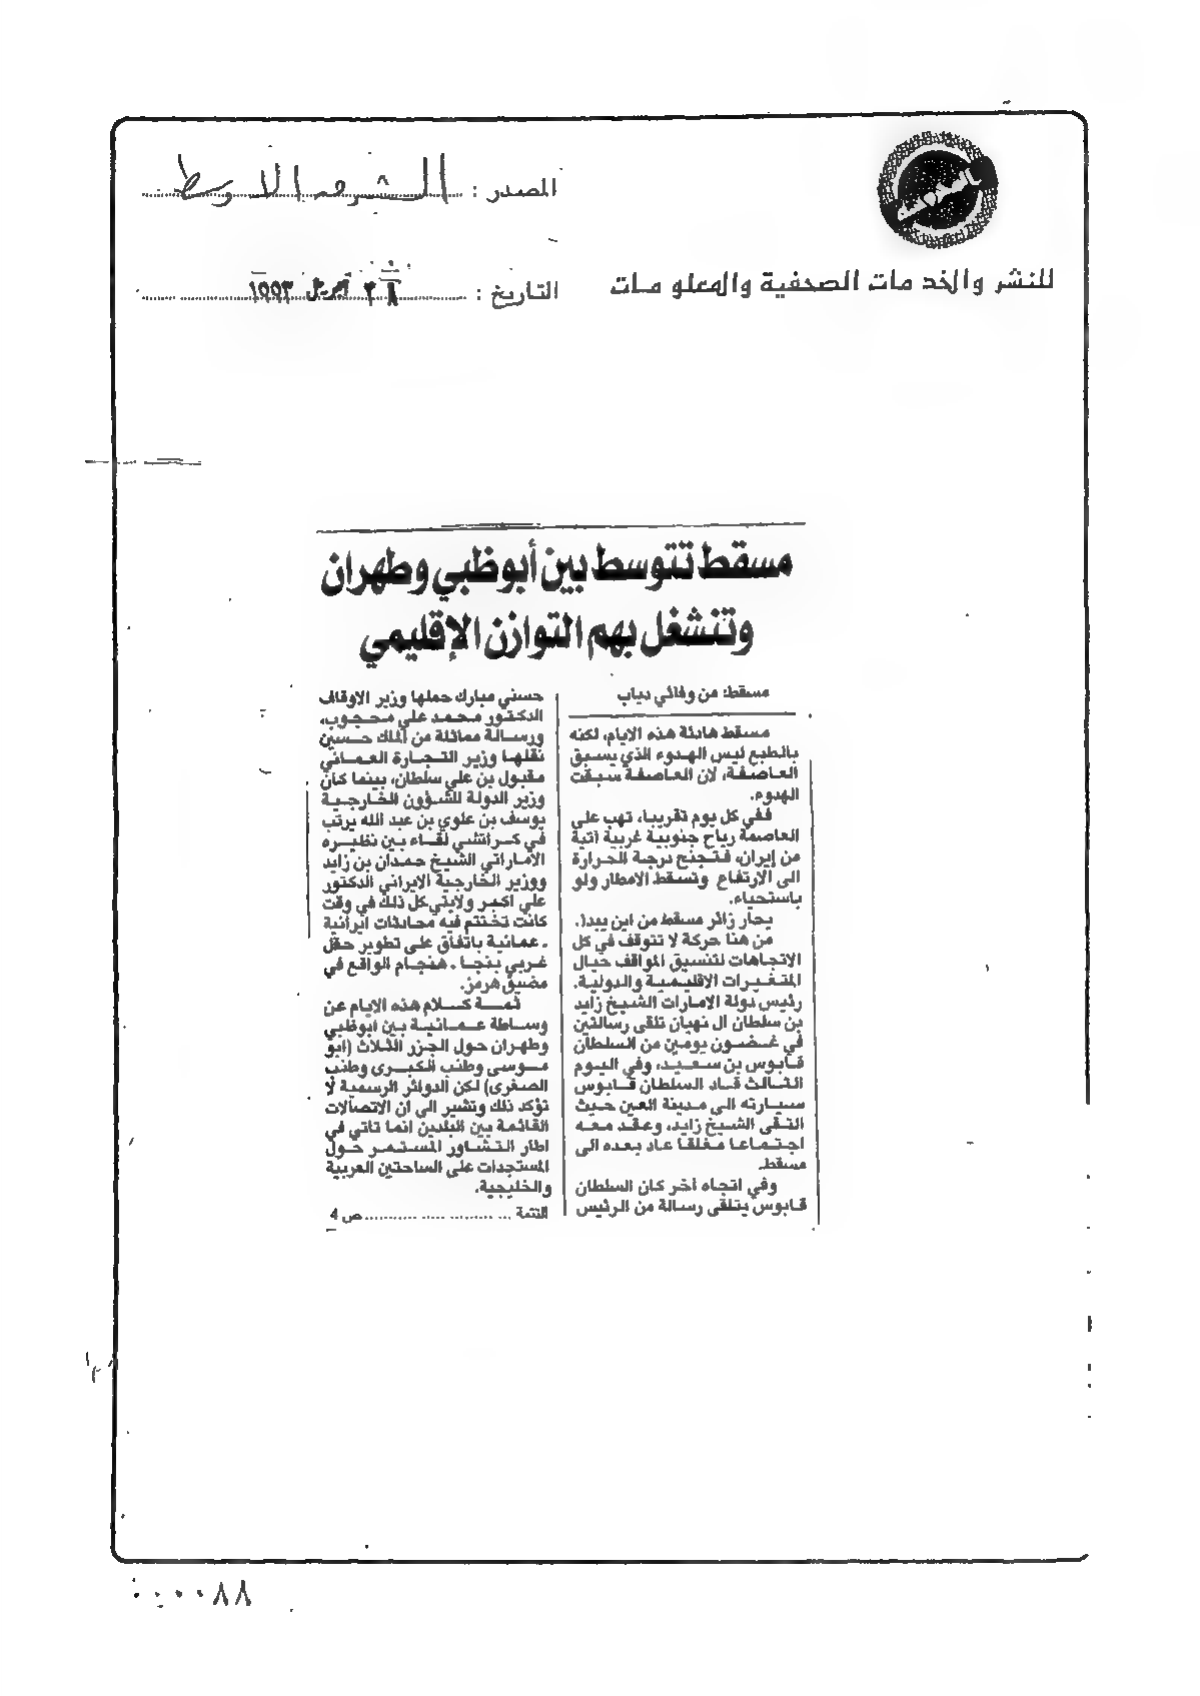 المصدر : الشرق الاوسط
للنشر والخدمات الصحفية والمعلومات
التاريخ : ابريل ١٩٩٣
مسقط تتوسط بين أبوظبي وطهران
وتنشغل بهم التوازن الإقليمي
مسقط: من وفائي دياب
مسقط هادئة هذه الايام، لكنه
بالطبع ليس الهدوء الذي يسبق
العاصفة، لان العاصفة سبقت
الهدوء.
ففي كل يوم تقريبا، تهب على
العاصمة رياح جنوبية غربية آتية
من إيران، فتجنح درجة الحرارة
الى الارتفاع وتسقط الامطار ولو
باستحياء.
يحار زائر مسقط من اين يبدا.
من هنا حركة لا تتوقف في كل
الاتجاهات لتنسيق المواقف حيال
المتغيرات الاقليمية والدولية.
رئيس دولة الامارات الشيخ زايد
بن سلطان ال نهيان تلقى رسالتين
في غضون يومين من السلطان
قابوس بن سعيد، وفي اليوم
الثالث قاد السلطان قابوس
سيارته الى مدينة العين حيث
التقى الشيخ زايد، وعقد معه
اجتماعا مغلقا عاد بعده الى
مسقط.
وفي اتجاه آخر كان السلطان
قابوس يتلقى رسالة من الرئيس
حسني مبارك حملها وزير الاوقاف
الدكتور محمد علي محجوب،
ورسالة مماثلة من الملك حسين
نقلها وزير التجارة العماني
مقبول بن علي سلطان، بينما كان
وزير الدولة للشؤون الخارجية
يوسف بن علوي بن عبد الله يرتب
في كراتشي لقاء بين نظيره
الاماراتي الشيخ حمدان بن زايد
ووزير الخارجية الايراني الدكتور
علي اكبر ولايتي كل ذلك في وقت
كانت تختتم فيه محادثات ايرانية
- عمانية باتفاق على تطوير حقل
غربي بنجا - هنجام الواقع في
مضيق هرمز.
ثمة كلام هذه الايام عن
وساطة عمانية بين ابوظبي
وطهران حول الجزر الثلاث (ابو
موسى وطنب الكبرى وطنب
الصغرى) لكن الدوائر الرسمية لا
تؤكد ذلك وتشير الى ان الاتصالات
القائمة بين البلدين انما تاتي في
اطار التشاور المستمر حول
المستجدات على الساحتين العربية
والخليجية.
التتمة ... ص 4
٠٠٠٠٨٨